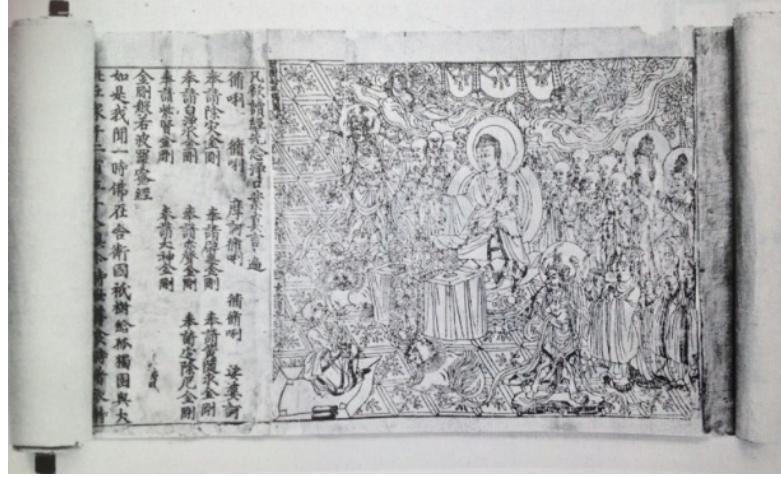 凡欲讀經先念淨口業真言一遍
脩唎 脩唎 摩訶脩唎 脩脩唎 娑婆訶
奉請除灾金剛 奉請辟毒金剛 奉請黃隨求金剛
奉請白淨水金剛 奉請赤聲金剛 奉請定除厄金剛
奉請紫賢金剛 奉請大神金剛
金剛般若波羅蜜經
如是我聞一時佛在舍衛國祇樹給孤獨園與大
比丘衆千二百五十人俱